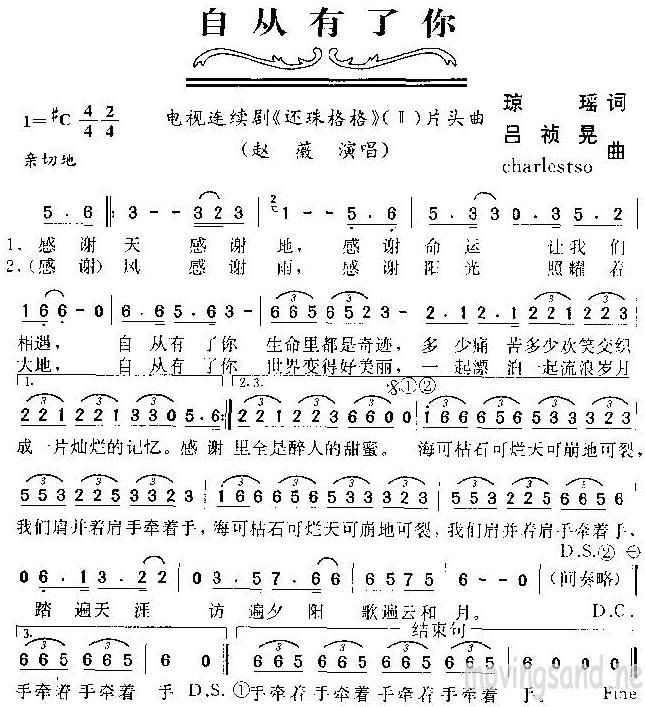 自从有了你
1=#C 4/4 2/4
电视连续剧《还珠格格》(Ⅱ)片头曲
琼 瑶 词
吕祯晃
charlestso 曲
亲切地
(赵 薇 演唱)
5.6 3-- 323 21-- 5.6 5.33 0.3 5.2
1. 感谢天 感谢地, 感谢命运 让我们
2.(感谢)风 感谢雨, 感谢阳光 照耀着
166-0 6.65.63 665 6523- 2.12.1 221 223
相遇, 自从有了你 生命里都是奇迹, 多少痛苦多少欢笑交织
大地, 自从有了你 世界变得好美丽, 一起漂泊一起流浪岁月
1. 2.3. ①②
221 221 3305.6 221 223 660 01 666 566 533 323
成一片灿烂的记忆。感谢 里全是醉人的甜蜜。 海可枯石可烂天可崩地可裂,
553 225 533 23 1 666 566 533 323 553 225 533 23
我们肩并着肩手牵着手,海可枯石可烂天可崩地可裂,我们肩并着肩手牵着手、
D.S.②
06.13.22 03.57.66 6575 6--0 (间奏略)
踏遍天涯 访遍夕阳 歌遍云和月。 D.C.
3. 结束句
665 665 60 665 665 665 665 60
手牵着手牵着手 D.S.①手牵着手牵着手牵着手牵着手。 Fine
movingsand.ne